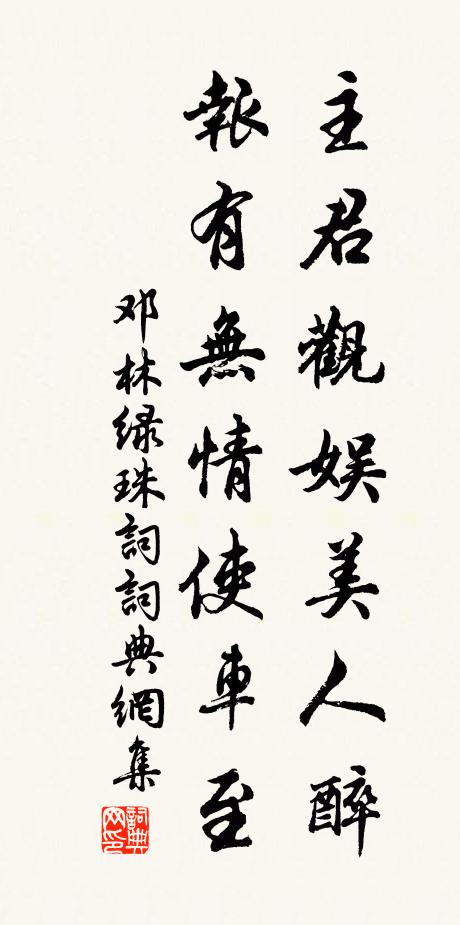 主君觀娛美人醉
報有無情使車至
邓林绿珠詞詞典網集
詞典网印